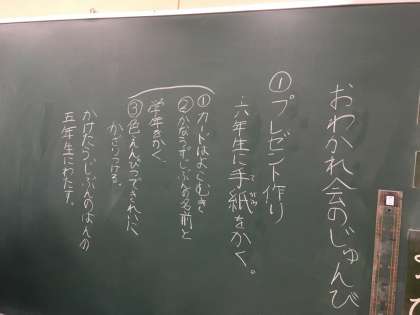 おわかれ会のじゅんび
① プレゼント作り
六年生に手紙をかく。
①カードはよこむき
②かならずじぶんの名前と
学年をかく。
③色えんぴつできれいに
かざりつける。
かけたらじぶんのはんの
五年生にわたす。